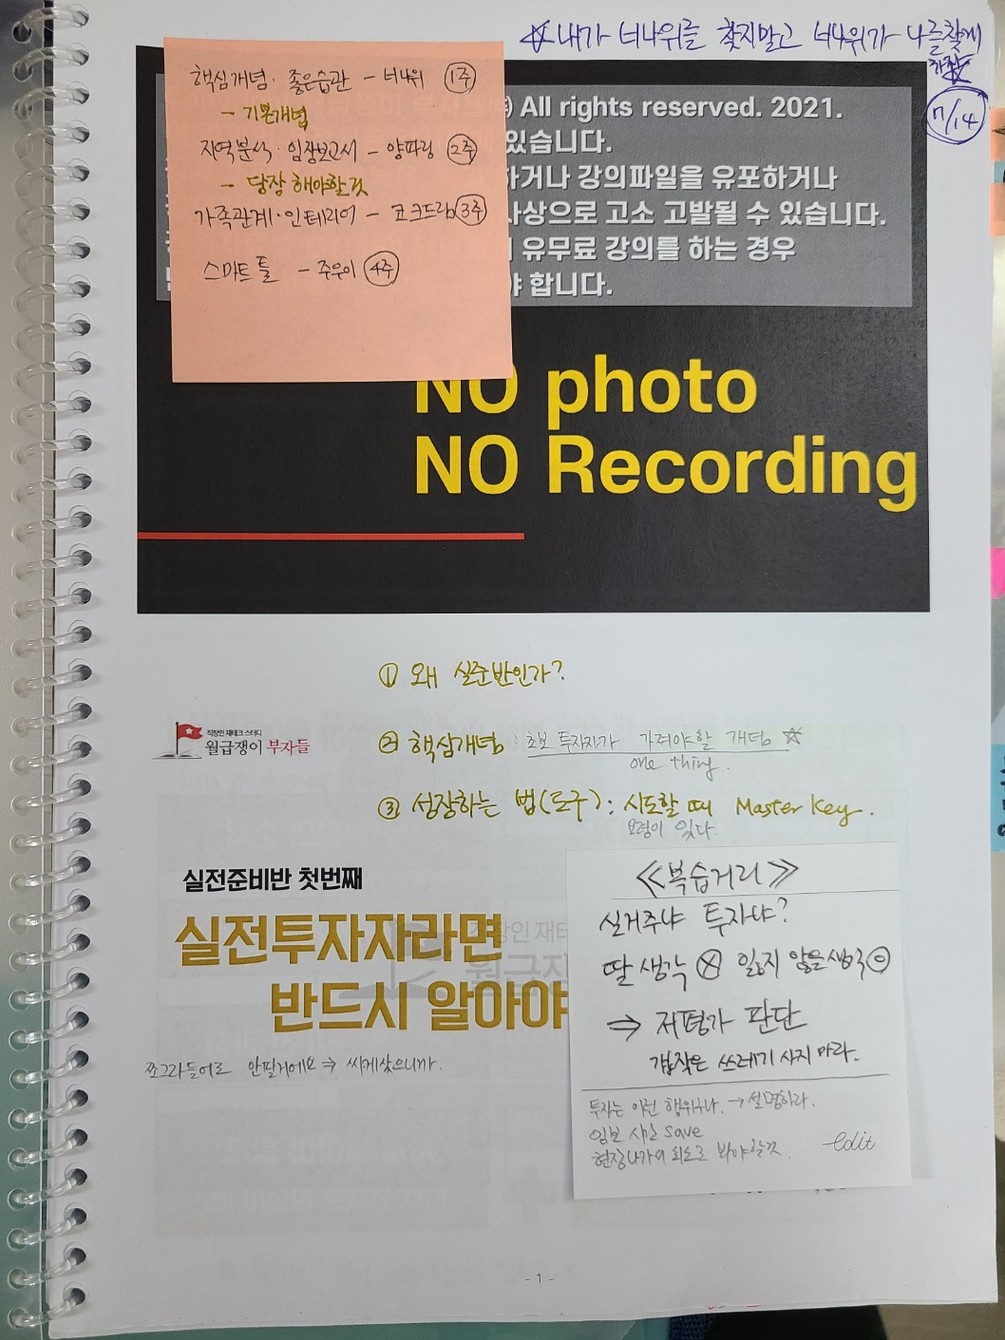 ☆ 내가 너나위를 찾지말고 너나위가 나를찾게
하자☆
7/14
핵심개념·좋은습관 - 너나위 1주
- 기본개념
지역분석·임장보고서 - 양파링 2주
- 당장 해야할것
가족관계·인테리어 - 코크드림 3주
스마트 툴 - 주우이 4주
All rights reserved. 2021.
있습니다.
하거나 강의파일을 유포하거나
사상으로 고소 고발될 수 있습니다.
유무료 강의를 하는 경우
합니다.
NO photo
NO Recording
① 왜 실준반인가?
직장인 재테크 스터디
월급쟁이 부자들
② 핵심개념 : 초보 투자자가 가져야할 개념 ☆
one thing.
③ 성장하는 법(도구) : 시도할 때 Master Key.
요령이 있다.
실전준비반 첫번째
실전투자자라면
반드시 알아야
쪼그라들어도 안팔거에요 ⇒ 싸게샀으니까.
≪복습거리≫
실거주냐 투자냐?
딸 생각 ⓧ 잃지 않을 생각 ⊙
⇒ 저평가 판단
값작은 쓰레기 사지 마라.
투자는 이런 행위구나. → 설명하라.
임보 시간 save
현장나가서 봐야할것.
edit
- 1 -